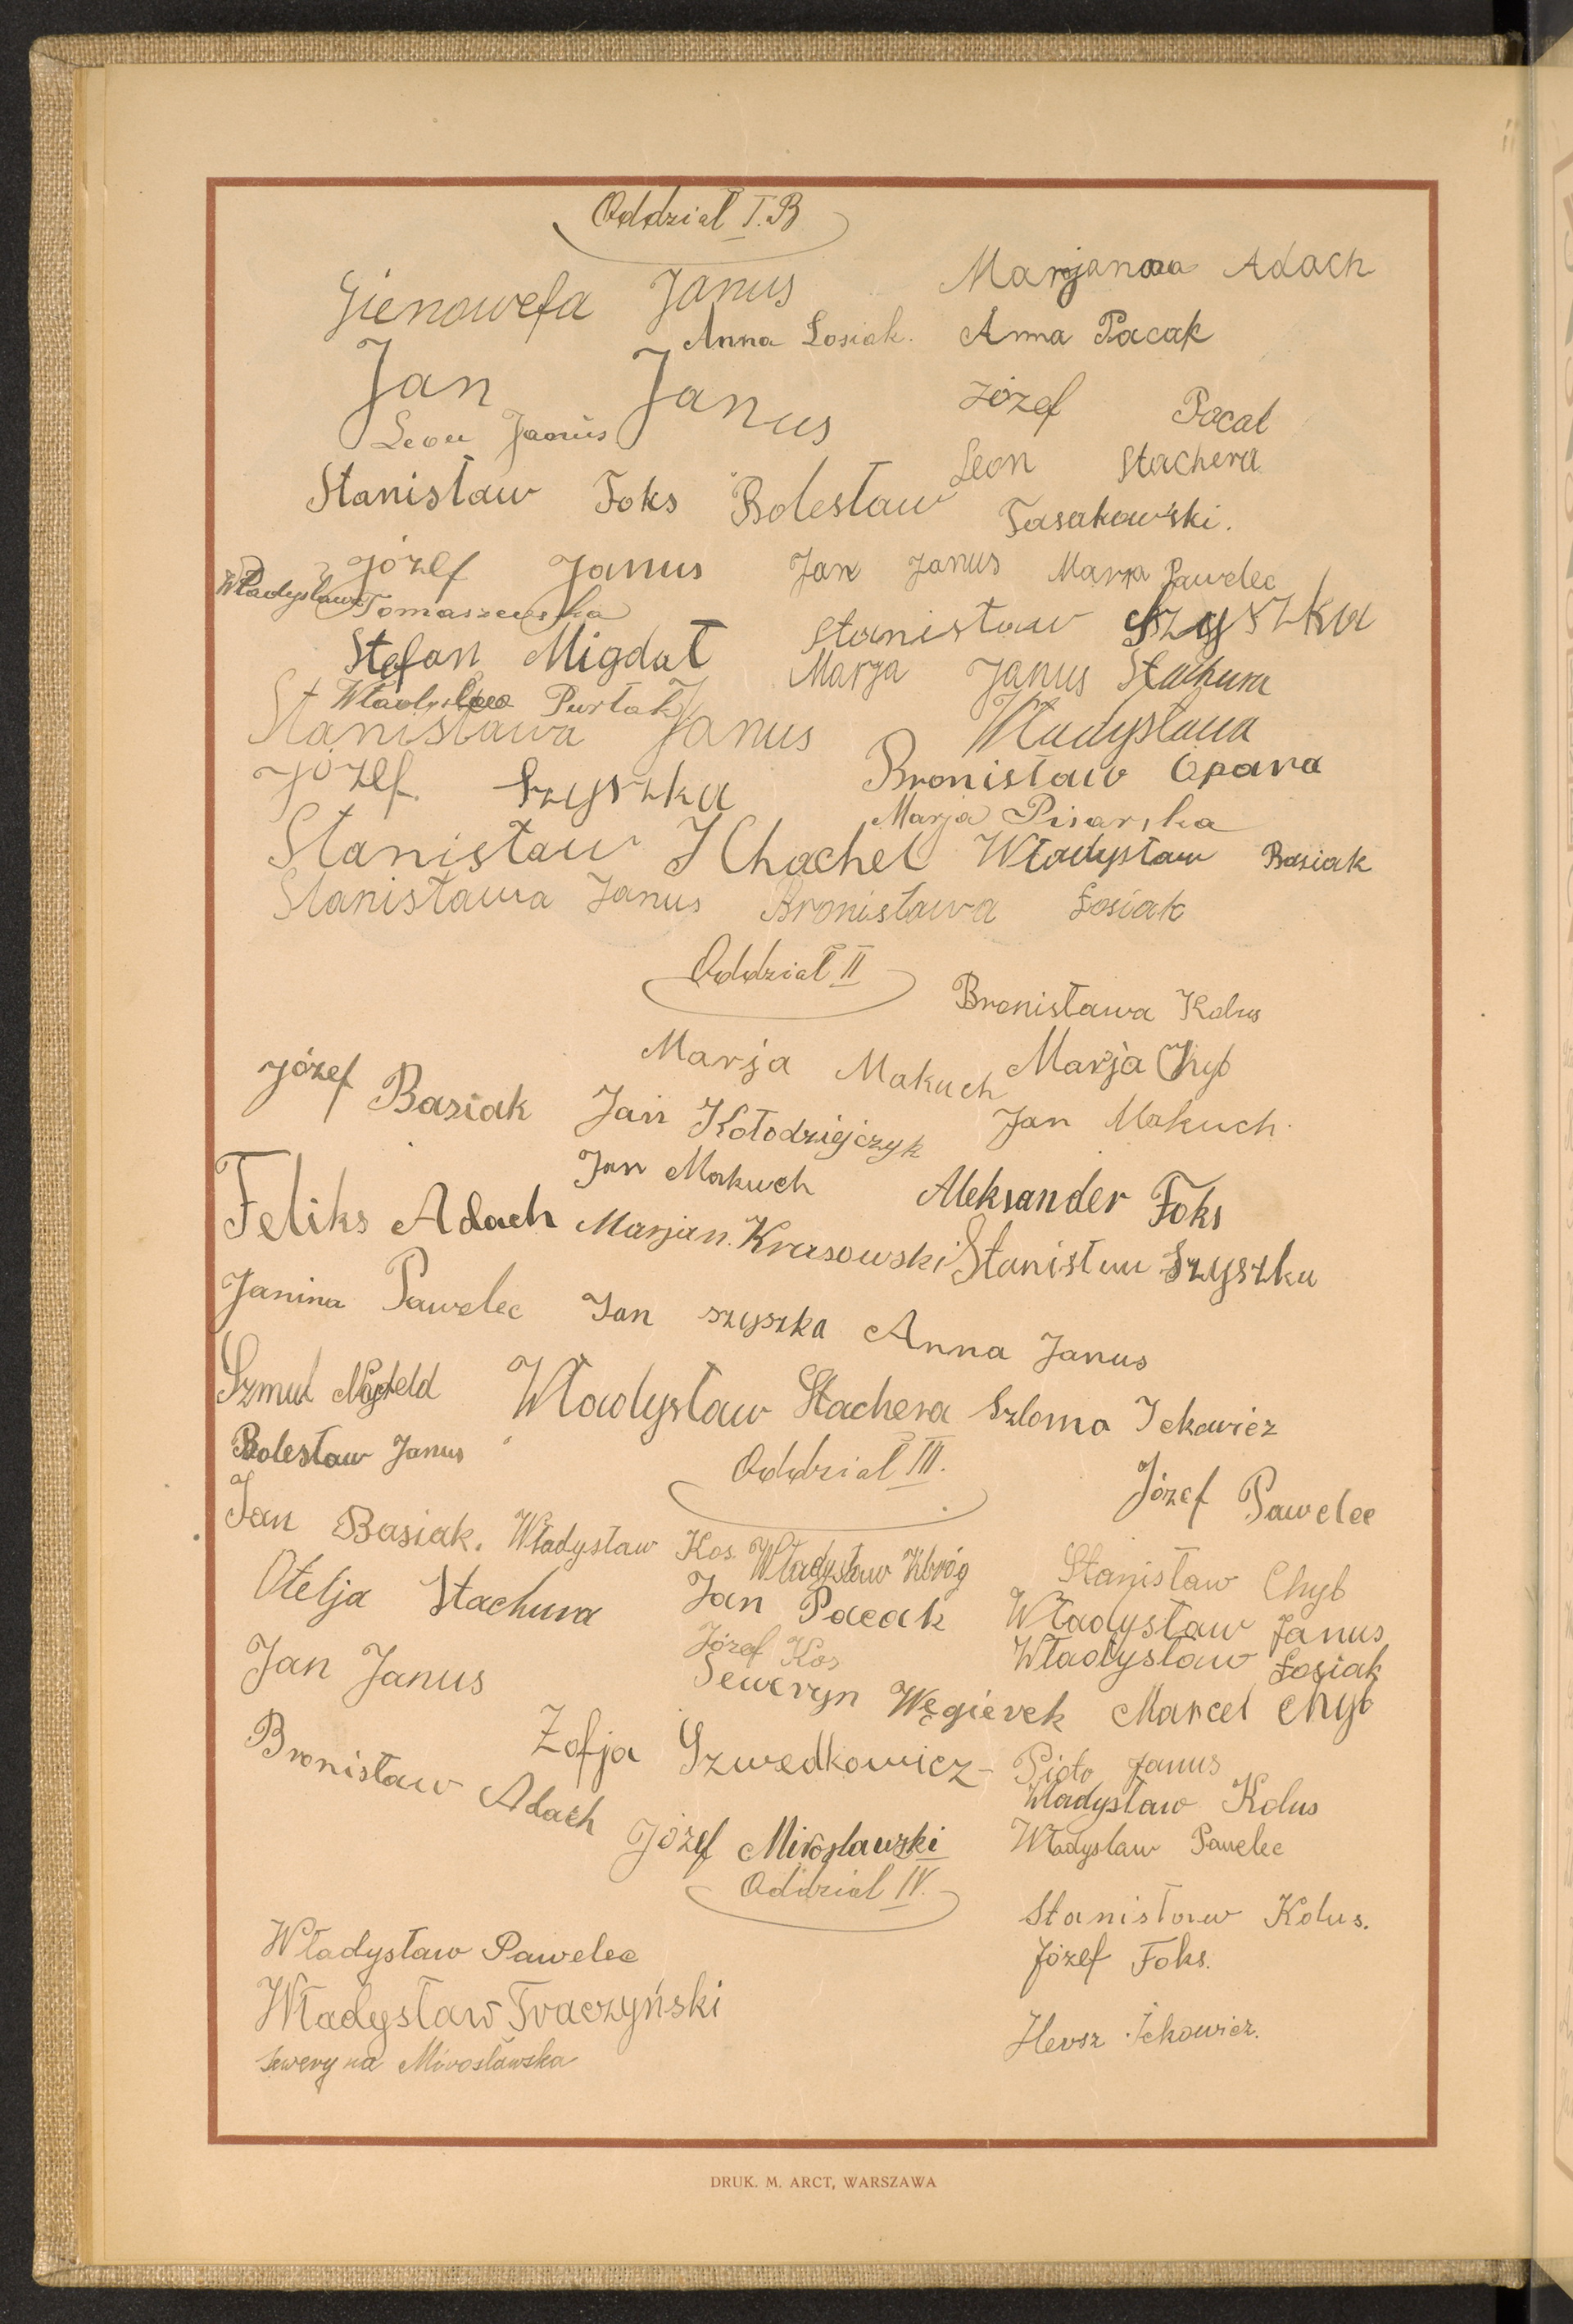 Oddział I.B
Gienowefa Janus
Marjanna Adach
Anna Łosiak.
Anna Pacak
Jan Janus
Józef Pacak
Leon Janus
Leon Stachera
Stanisław Foks
Bolesław Tasakowski.
Józef Janus
Jan Janus
Marja Pawelec
Władysława Tomaszewska
Stanisław Szyszka
Stefan Migdał
Marja Janus
Stachura Władysława
Purtak
Stanisława Janus
Józef Szyszka
Bronisław Opara
Marja Pisarska
Stanisław Chachel
Władysław Basiak
Stanisława Janus
Bronisława Łosiak
Oddział II
Bronisława Kolus
Marja Makuch
Marja Chyb
Józef Basiak
Jan Kołodziejczyk
Jan Makuch.
Jan Makuch
Aleksander Foks
Feliks Adach
Marjan. Krasowski
Stanisław Szyszka
Janina Pawelec
Jan szyszka
Anna Janus
Szmul
Władysław Stachera
Szloma Ickowicz
Bolesław Janus
Oddział III.
Józef Pawelec
Jan Basiak.
Władysław Kos.
Władysław Zbróg
Stanisław Chyb
Otelja Stachura
Jan Pacak
Władysław Janus
Józef Kos
Władysław Łosiak
Jan Janus
Seweryn Węgierek
Marcel Chyb
Zofja Szwedkowicz
Piotr Janus
Bronisław Adach
Władysław Kolus
Józef Mirosławski
Władysław Pawelec
Oddział IV.
Stanisław Kolus.
Władysław Pawelec
Józef Foks.
Władysław Traczyński
Hersz Ickowicz.
Seweryna Mirosławska
DRUK. M. ARCT, WARSZAWA